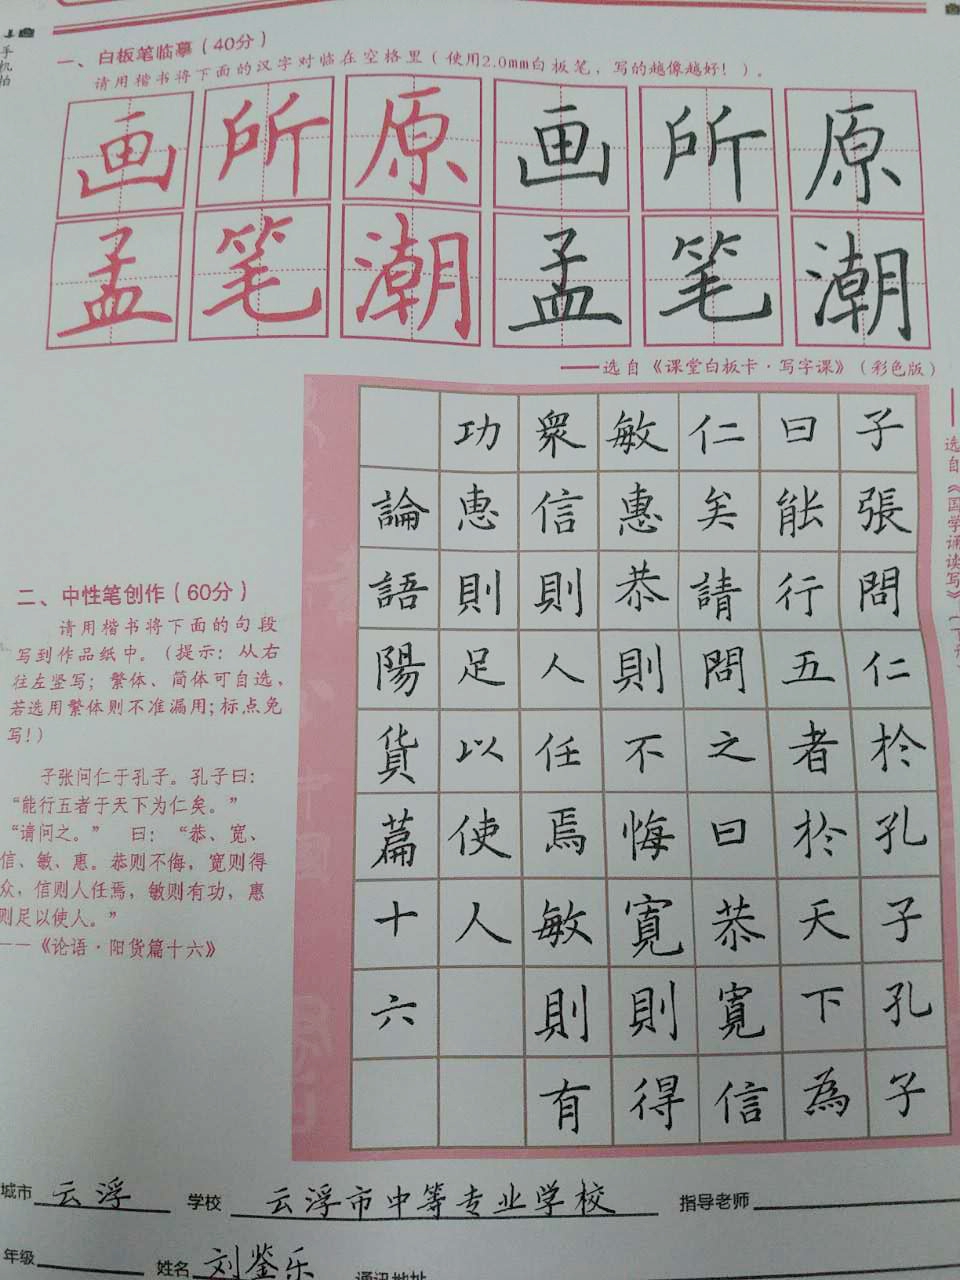 手机拍
一、白板笔临摹（40分）
请用楷书将下面的汉字对临在空格里（使用2.0mm白板笔，写的越像越好！）。
画所原画所原
孟笔潮孟笔潮
——选自《课堂白板卡·写字课》（彩色版）
选自《国学诵读写》
子張問仁於孔子孔子
曰能行五者於天下為
仁矣請問之曰恭寬信
敏惠恭則不悔寬則得
衆信則人任焉敏則有
功惠則足以使人
論語陽貨篇十六
二、中性笔创作（60分）
请用楷书将下面的句段
写到作品纸中。（提示：从右
往左竖写；繁体、简体可自选，
若选用繁体则不准漏用；标点免
写！）
子张问仁于孔子。孔子曰：
“能行五者于天下为仁矣。”
“请问之。” 曰：“恭、宽、
信、敏、惠。恭则不侮，宽则得
众，信则人任焉，敏则有功，惠
则足以使人。”
——《论语·阳货篇十六》
城市 云浮 学校 云浮市中等专业学校 指导老师
年级 姓名 刘鉴乐 通讯地址